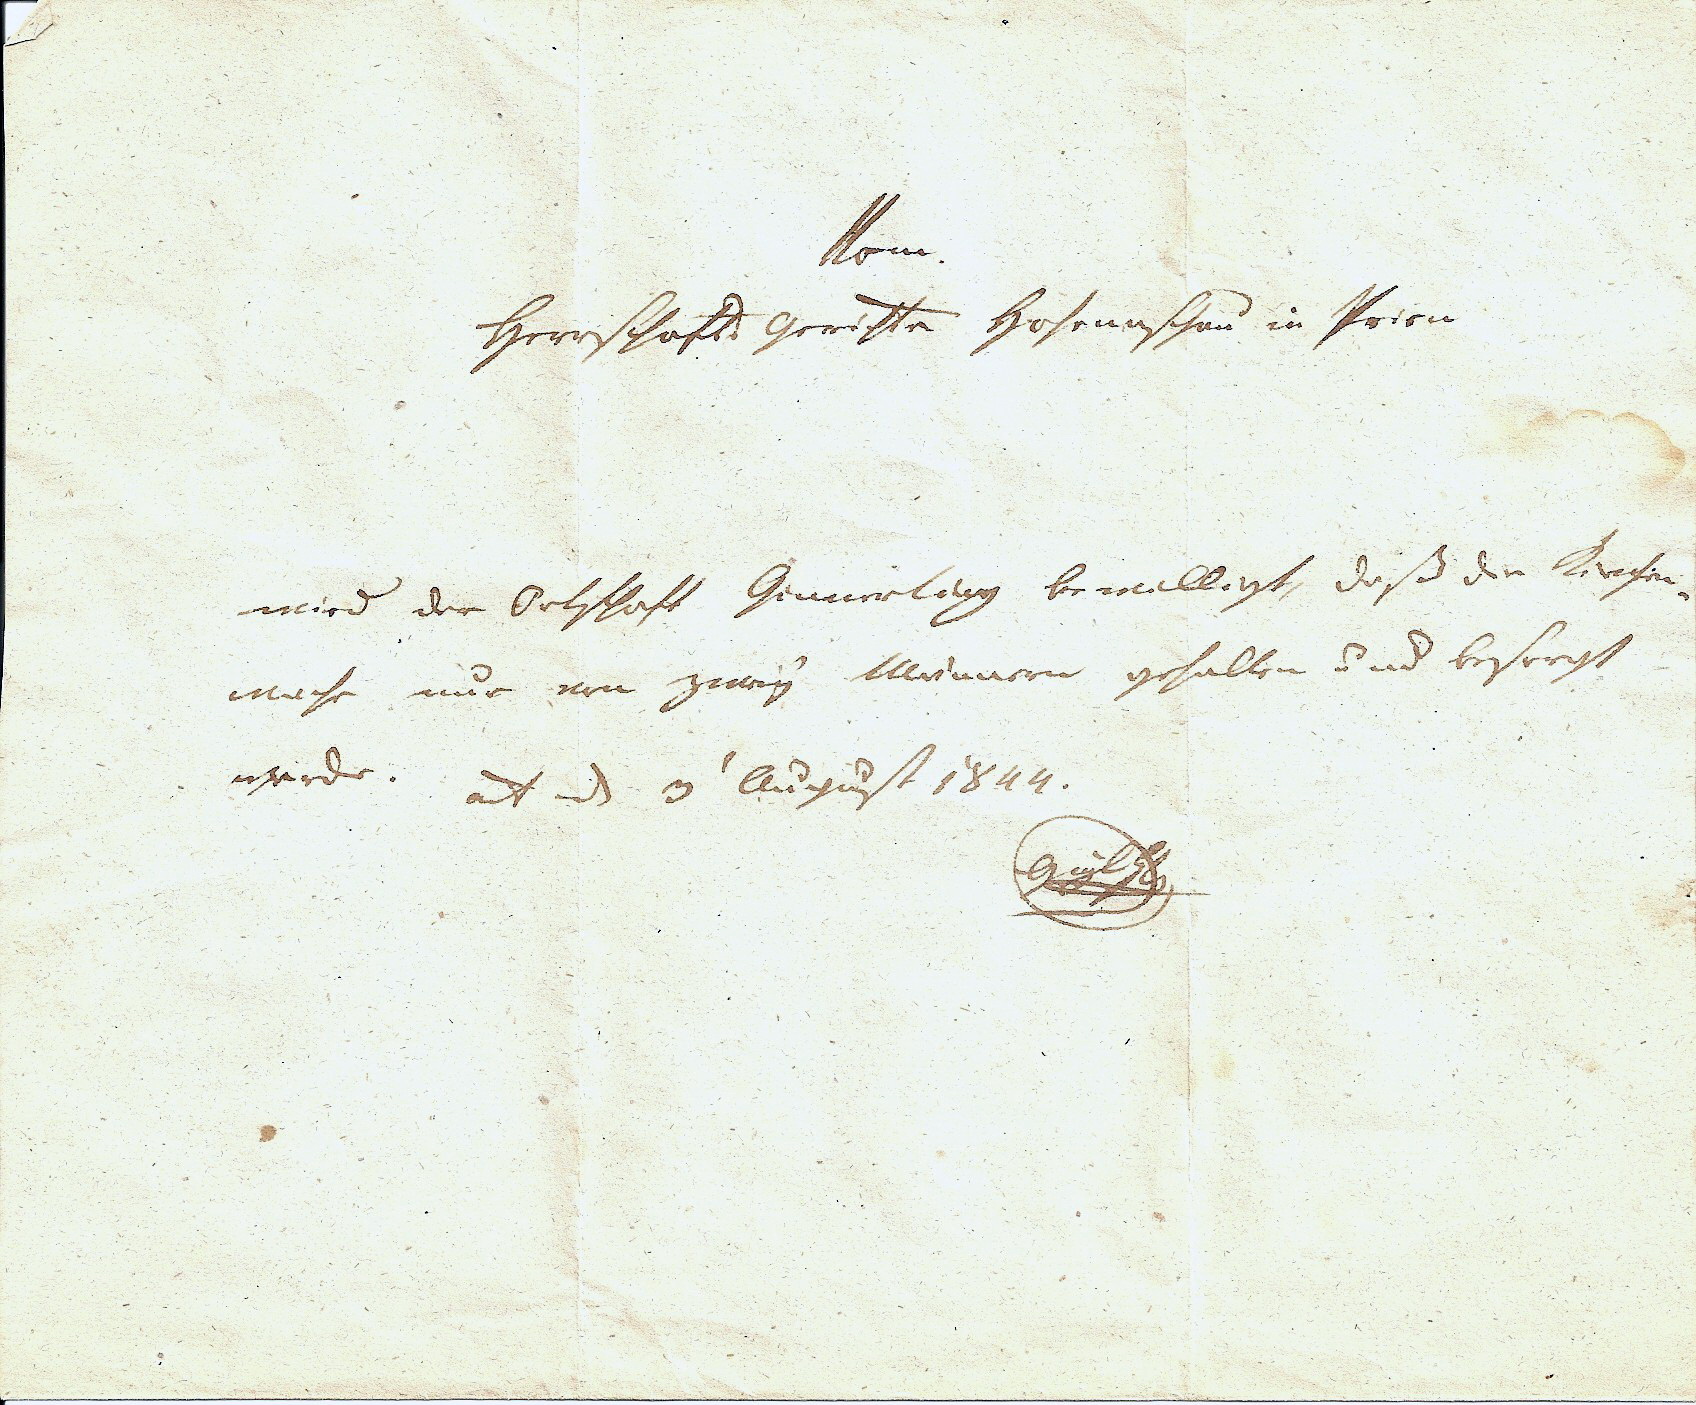 Vom
Herrschafts Gerichte Hohenaschau in Prien
wird der Ortschaft bewilligt, daß die Kirchen-
wache nur von zwey Männern gehalten und besorgt
werde. act. d. 3' August 1844.